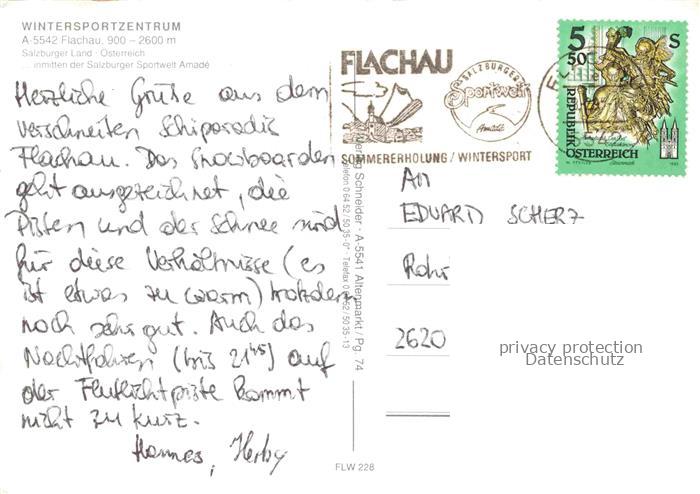 WINTERSPORTZENTRUM
A-5542 Flachau, 900 – 2600 m
Salzburger Land · Österreich
... inmitten der Salzburger Sportwelt Amadé
Herzliche Grüße aus dem
verschneiten Schiparadis
Flachau. Das Snowboarden
geht ausgezeichnet, die
Pisten und der Schnee sind
für diese Verhältnisse (es
ist etwas zu warm) trotzdem
noch sehr gut. Auch das
Nachtfahren (bis 21⁴⁵) auf
der Flutlichtpiste kommt
nicht zu kurz.
Hannes, Herby
FLACHAU
SALZBURGER
Sportwelt
Amadé
SOMMERERHOLUNG / WINTERSPORT
5 50 S
REPUBLIK
ÖSTERREICH
Schneider · A-5541 Altenmarkt / Pg. 74
Telefon 0 64 52 / 50 35-0* · Telefax 0 64 52 / 50 35-13
An
EDUARD SCHERZ
Rohr
2620
privacy protection
Datenschutz
FLW 228